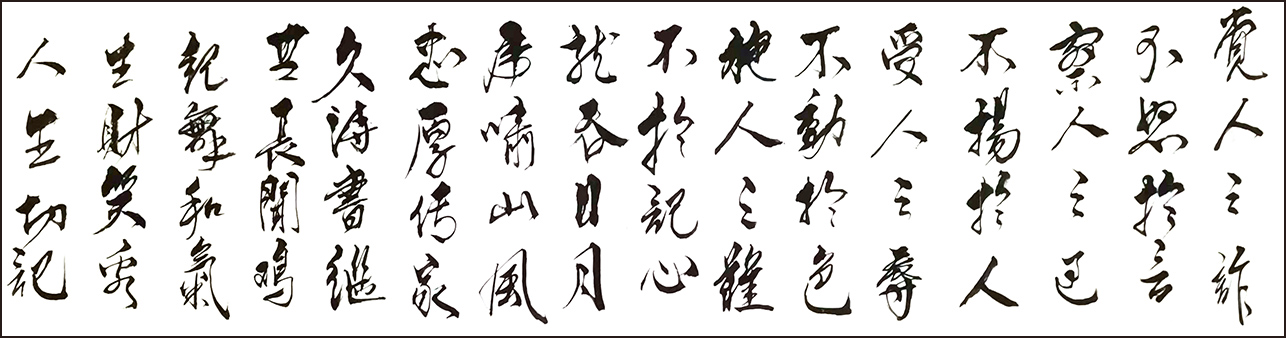 覺人之詐
不怒於言
察人之過
不揚於人
受人之辱
不動於色
施人之
不於記心
龙吞日月
虎嘯山風
忠厚传家
久詩書繼
世長聞鸡
起舞和氣
生財笑看
人生切記